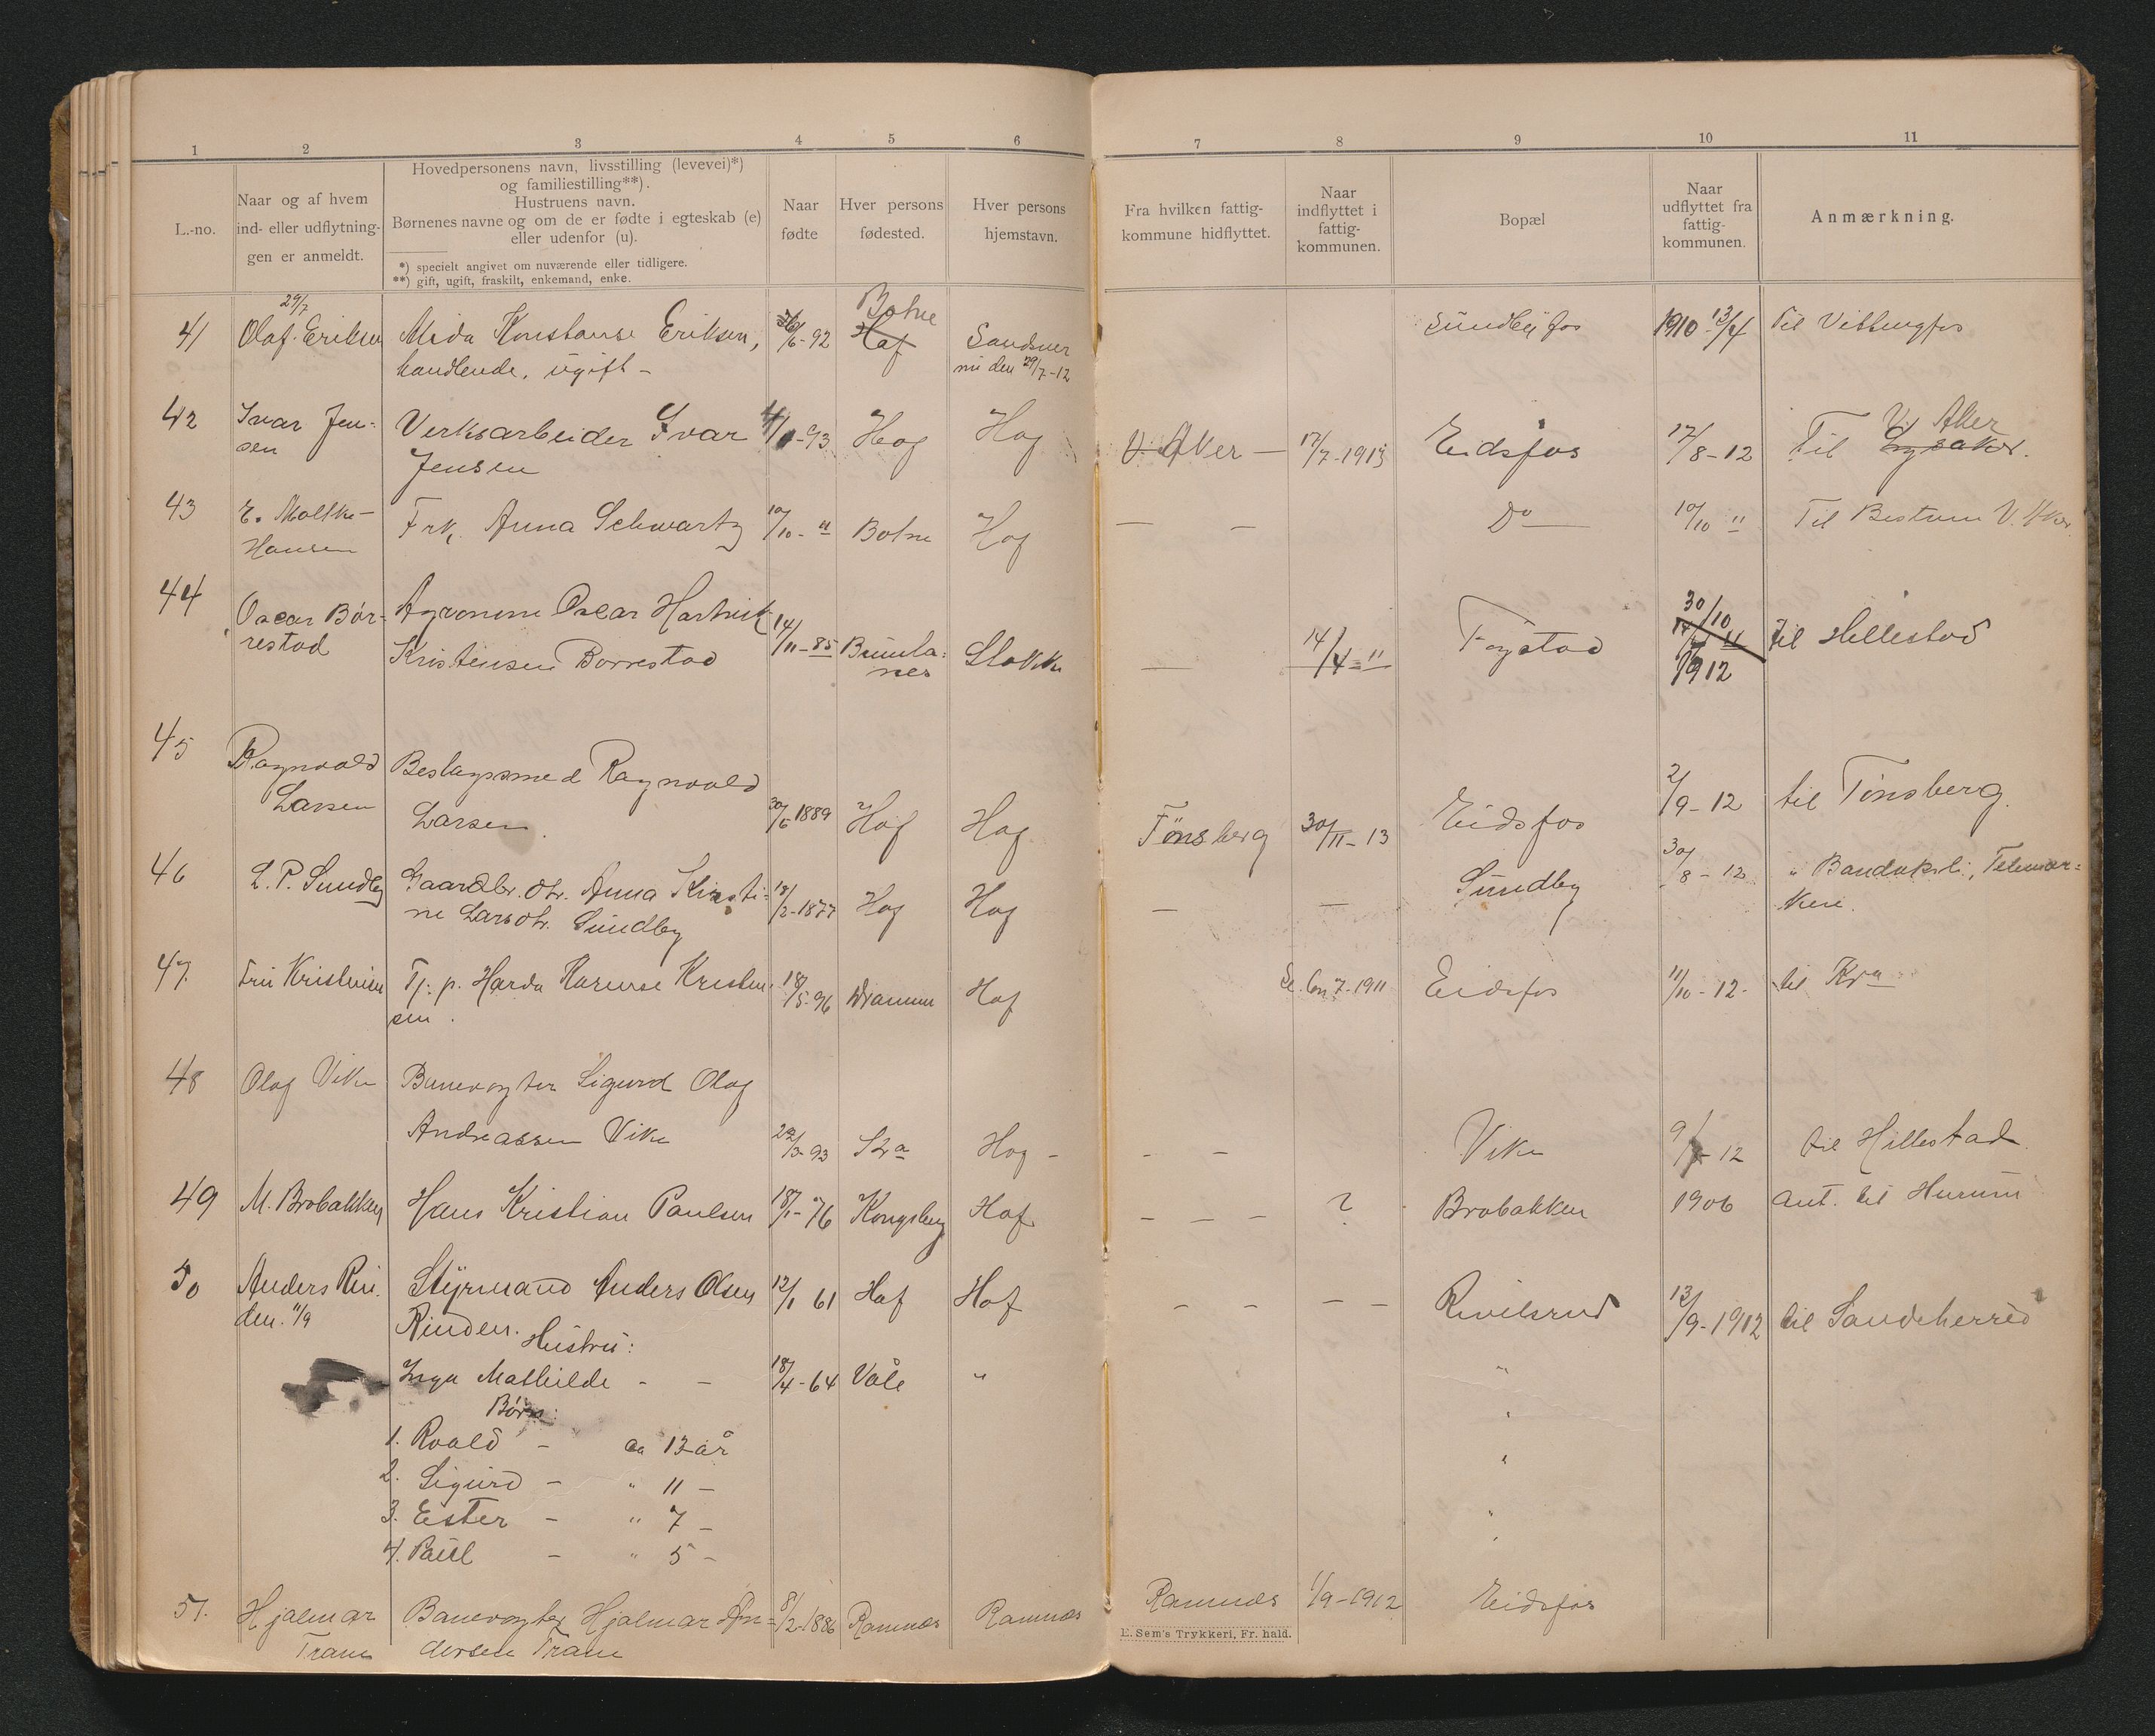 1 2 3 4 5 6 7 8 9 10 11
L.-no.
Naar og af hvem
ind- eller udflytnin-
gen er anmeldt.
Hovedpersonens navn, livsstilling (levevei)*)
og familiestilling**).
Hustruens navn.
Børnenes navne og om de er fødte i egteskab (e)
eller udenfor (u).
*) specielt angivet om nuværende eller tidligere.
**) gift, ugift, fraskilt, enkemand, enke.
Naar
fødte
Hver persons
fødested.
Hver persons
hjemstavn.
Fra hvilken fattig-
kommune hidflyttet.
Naar
indflyttet i
fattig-
kommunen.
Bopæl
Naar
udflyttet fra
fattig-
kommunen.
Anmærkning.
29/7 Botne
41 Olaf Eriksen Konstanse Eriksen, /6-92 Haf Sandsver Sundbyfos 1910 13/4 Til Vittingfos
handlende, ugift - nu den 29/7-12
V. Aker
42 Ivar Jen- Verksarbeider Ivar -93 Hof Hof V. Aker - 17/7-1913 Eidsfos 17/8-12 Til Lysaker.
sen Jensen
43 E. Moltke- Frk. Anna Schwartz 10/10-" Botne Hof - - Do 10/10 " Til Bestum V. Aker
Hansen
44 Oscar Bör- Agronom Oscar Hartvik 14/11-85 Brunla- Slokke - 14/4-" 30/10 til Hillestad
restad Kristensen Borrestad nes 1912
45 Ragnvald Beslagsmed Ragnvald
Larsen Larsen. 30/6 1889 Hof Hof Tønsberg 30/11-13 Eidsfos 2/9-12 til Tønsberg.
46 L. P. Sundby Gaardbr. dtr. Anna Kirsti- 13/2-1877 Hof Hof - - Sundby 30/8-12 " Bandaksli, Telemar-
ne Larsdtr. Sundby ken.
47. Fru Kristensen Tj. p. Harda Kristen- 18/5-96 Dramm Hof 7-1911 Eidsfos 11/10-12- til Kra
sen.
48 Olaf Vike Banevogter Sigurd Olaf
Andreassen Vike 22/3-93 Hof - - - Vike 9/ -12 til Hillestad
49 M. Brobakken Hans Kristian Paulsen 18/1-76 Kongsberg Hof - - - ? Brobakken 1906 ant. til Hurum
50 Anders Rin- Styrmand Anders Olsen 12/1 61 Hof Hof - - - - 13/9-1912 til Sandeherred
den. 11/9 Rinden.
Hustru:
Inga Mathilde - - 18/4-64 Våle "
Børn:
1. Roald - ca 13 år
2. Sigurd - " 11 -
3. Ester - " 7 -
4. Paul - " 5 -
51. Hjalmar Banevogter Hjalmar An- 8/2-1886 Ramnæs Ramnæs Ramnæs 1/9-1912 Eidsfos
Tram dersen Tram
E. Sem's Trykkeri, Fr. hald.